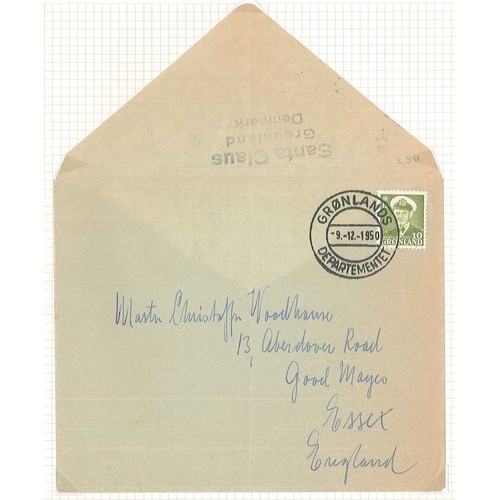 Santa Claus
Greenland
Denmark
GRØNLANDS
-9.-12.-1950
DEPARTEMENTET
10
GRØNLAND
Master Christoffer Woodhouse
13, Aberdover Road
Good Mayeo
Essex
England